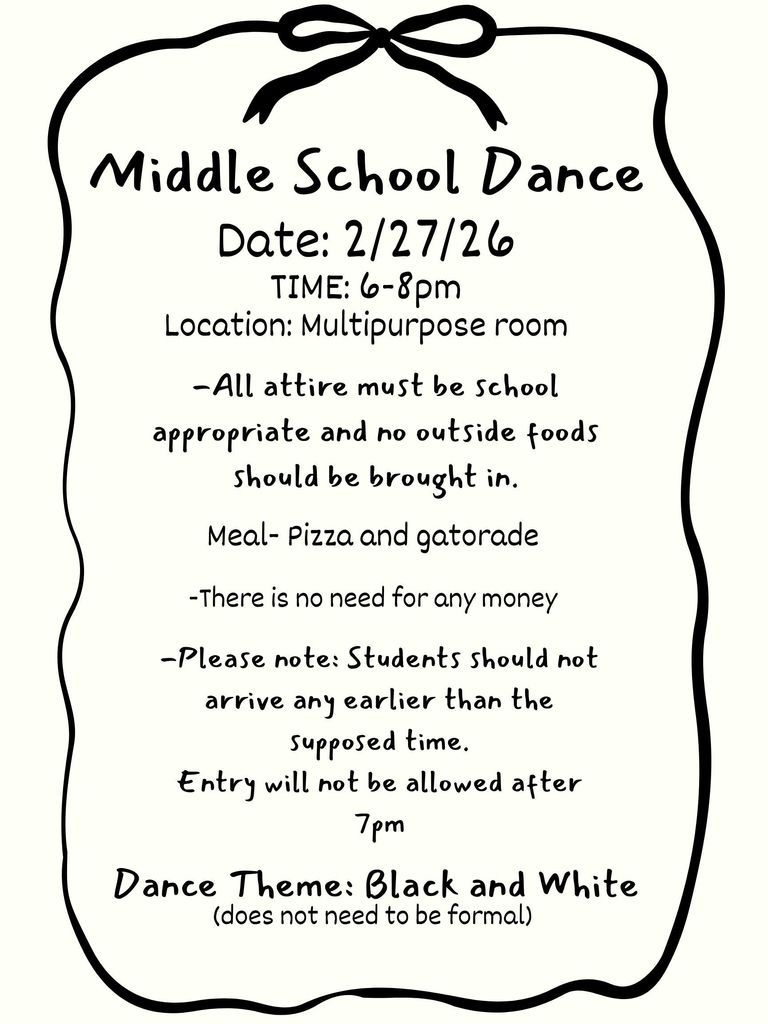 Middle School Dance
Date: 2/27/26
TIME: 6-8pm
Location: Multipurpose room
-All attire must be school
appropriate and no outside foods
should be brought in.
Meal- Pizza and gatorade
-There is no need for any money
-Please note: Students should not
arrive any earlier than the
supposed time.
Entry will not be allowed after
7pm
Dance Theme: Black and White
(does not need to be formal)